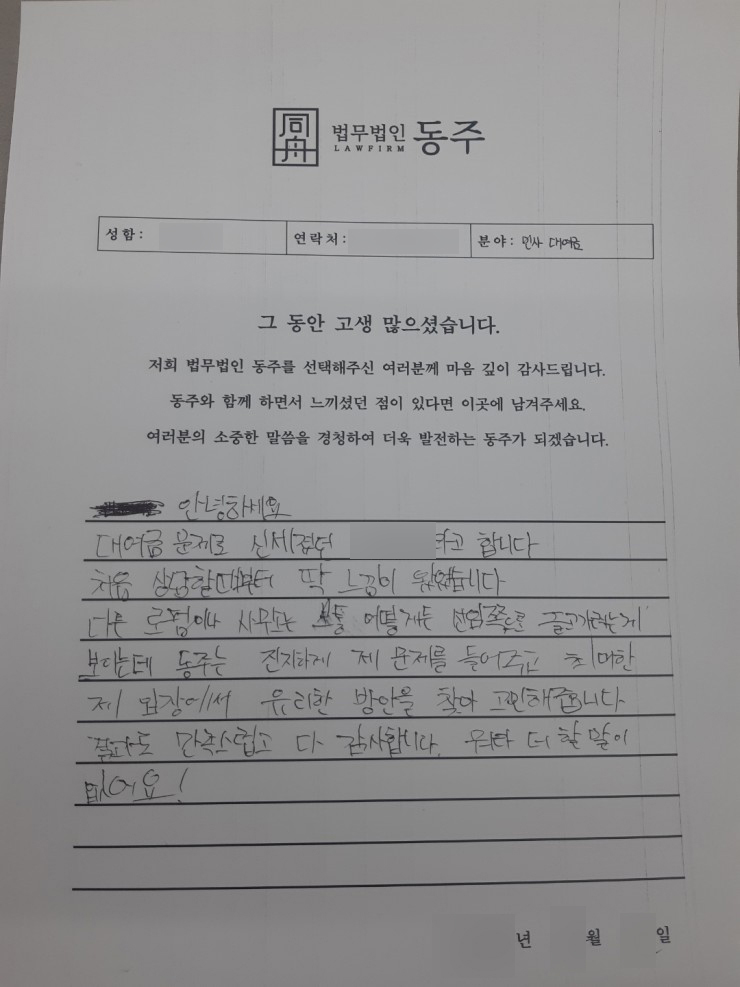 同舟 법무법인 LAWFIRM 동주
성함: 연락처: 분야: 민사 대여금
그 동안 고생 많으셨습니다.
저희 법무법인 동주를 선택해주신 여러분께 마음 깊이 감사드립니다.
동주와 함께 하면서 느끼셨던 점이 있다면 이곳에 남겨주세요.
여러분의 소중한 말씀을 경청하여 더욱 발전하는 동주가 되겠습니다.
안녕하세요
대여금 문제로 신세졌던 라고 합니다
처음 상담할때부터 딱 느낌이 왔었습니다
다른 로펌이나 사무소는 보통 어떻게든 선임쪽으로 끌고가려는게
보이는데 동주는 진지하게 제 문제를 들어주고 최대한
제 입장에서 유리한 방안을 찾아 고민해줍니다
결과도 만족스럽고 다 감사합니다. 뭐라 더 할 말이
없어요!
년 월 일